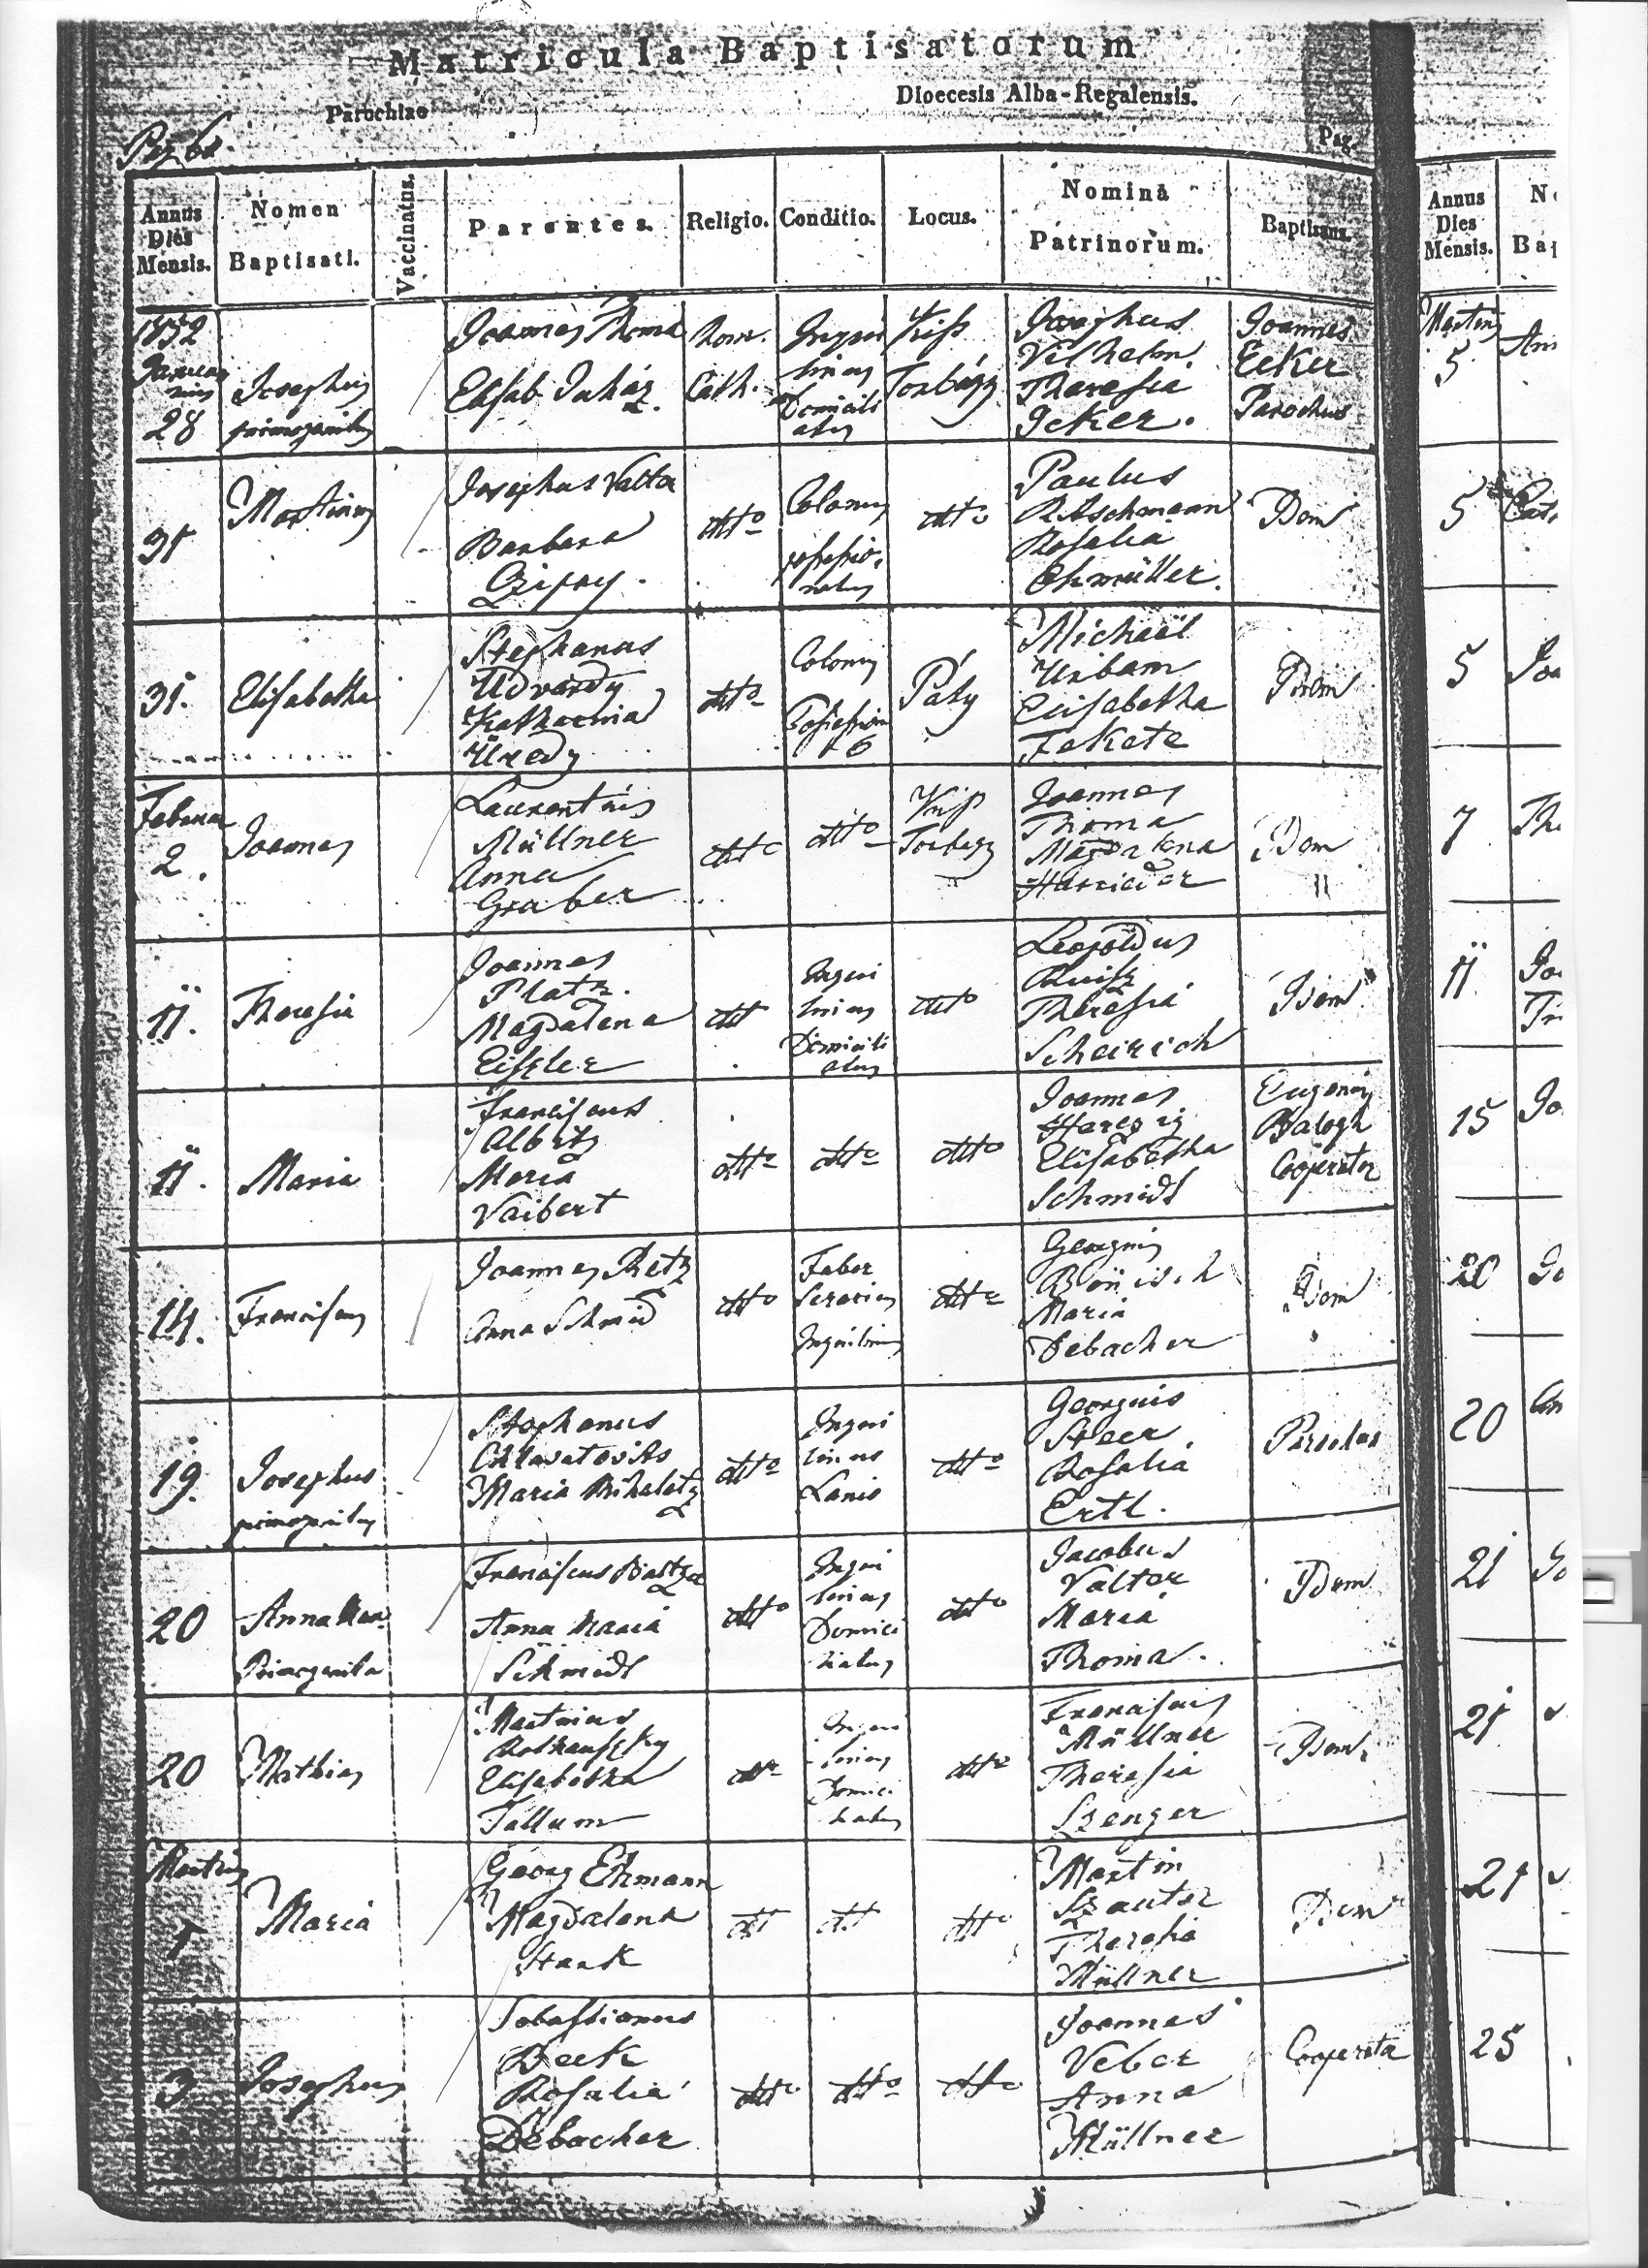 Matricula Baptisatorum
Parochiae
Dioecesis Alba-Regalensis.
Pag.
Annus Dies Mensis.
Nomen Baptisati.
Vaccinatus.
Parentes.
Religio.
Conditio.
Locus.
Nomina Patrinorum.
Baptisans.
1852
Januarius
28
Josephus
primogenitus
Joannes Thoma
Elisab Juhász.
Rom.
Cath.
Inqui
linus
Domicili
atus
Kiss
Torbágy
Josephus
Vilhelm
Theresia
Ecker.
Joannes
Ecker
Parochus
31
Martinus
Josephus Valter
Barbara
dtto
Colonus
dtto
Paulus
Rosalia
Idem
31.
Elisabetha
Stephanus
Udvardy
Katharina
Üredy
dtto
Colonus
Páty
Michael
Urbam
Elisabetha
Fekete
Idem
Februar
2.
Joannes
Laurentius
Müllner
Anna
Graber
dtto
dtto
Kiss
Torbágy
Joannes
Thoma
Magdalena
Idem
11.
Theresia
Joannes
Platz.
Magdalena
Eiszler
dtt
Inqui
linus
Domicili
atus
dtto
Leopoldus
Theresia
Scheirich
Idem
11.
Maria
Franciscus
Albitz
Maria
Vaibert
dtto
dtto
dtto
Joannes
Herczig
Elisabetha
Schmidt
Eugenius
Balogh
Cooperator
14.
Franciscus
Joannes Retz
Anna Schmid
dtto
Faber
Serarius
Inquilinus
dtto
Georgius
Bönisch
Maria
Debacher
Idem
19.
Josephus
primogenitus
Stephanus
Maria
dtto
Inqui
linus
Lanio
dtto
Georgius
Steer
Rosalia
Ertl.
Parochus
20
Anna Mar.
Primogenita
Franciscus
Anna Maria
Schmidt
dtto
Inqui
linus
Domici
liatus
dtto
Jacobus
Valter
Maria
Thoma.
Idem
20
Mathias
Martinus
Elisabetha
Tallum
dtto
Inqui
linus
Domici
liatus
dtto
Franciscus
Müllner
Theresia
Szenger
Idem
Martius
1
Maria
Georg Ehmann
Magdalena
Hauk
dtt
dtt
dtto
Martin
Szauter
Theresia
Müllner
Idem
3
Josephus
Sebastianus
Beck
Rosalia
Debacher
dtto
dtto
dtto
Joannes
Veber
Anna
Müllner
Cooperator
Annus Dies Mensis.
Martius
5
5
5
7
11
15
20
20
21
21
21
25